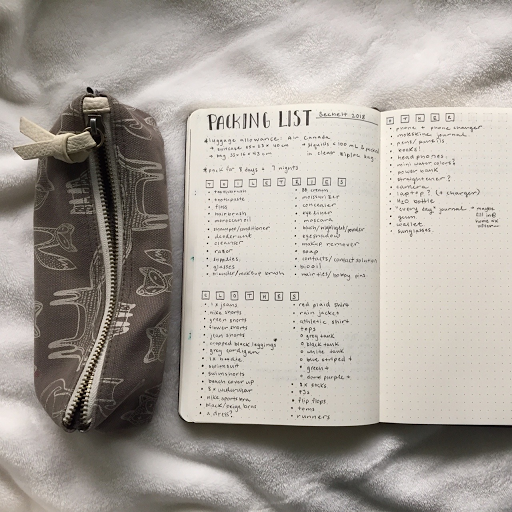 PACKING LIST Sechelt 2018
luggage allowance: Air Canada
→ suitcase 55 x 23 x 40 cm
→ bag 33 x 16 x 43 cm
→ liquids < 100 mL & packed in clear ziploc bag
pack for 8 days + 7 nights
TOILETRIES
• toothbrush
• toothpaste
• floss
• hairbrush
• shampoo/conditioner
• deodorant
• cleanser
• razor
• glasses
• BB cream
• moisturizer
• concealer
• eyeliner
• mascara
• eyeshadow
• makeup remover
• soap
• contacts/contact solution
• hairties/bobby pins
CLOTHES
• nike shorts
• green shorts
• flower shorts
• jean shorts
• cropped black leggings
• grey cardigan
• 1x hoodie
• swimsuit
• swimshorts
• beach cover up
• 8x underwear
• nike sports bra
• black/beige bras
• a dress?
• red plaid shirt
• rain jacket
• athletic shirt
• tops
o grey tank
o black tank
o white tank
o blue striped t
o green t
• flip flops
• toms
• runners
OTHER
• phone + phone charger
• moleskine journal
• pens/pencils
• books!
• headphones
• mini watercolors?
• power bank
• straightener?
• camera
• laptop? (+ charger)
• H2O bottle
• "every day" journal → maybe
• gum
• wallet
• sunglasses